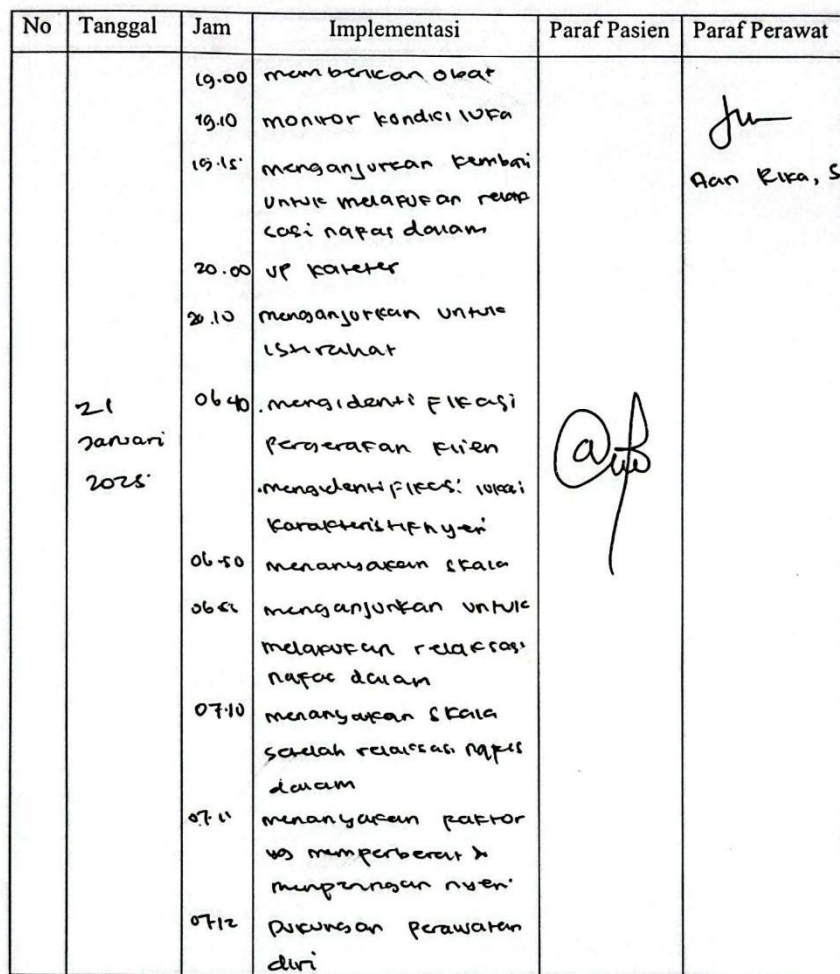 No Tanggal Jam Implementasi Paraf Pasien Paraf Perawat
19.00 memberikan obat
19.10 monitor kondisi luka
19.15 menganjurkan kembali
untuk melakukan relak
sasi napas dalam
Aan Rika, S
20.00 up kateter
20.10 menganjurkan untuk
istirahat
21 Januari 2025 06.40 . mengidentifikasi
pergerakan klien
. mengidentifikasi lokasi
karakteristik nyeri
06.50 menanyakan skala
06.55 menganjurkan untuk
melakukan relaksasi
nafas dalam
07.10 menanyakan skala
setelah relaksasi napas
dalam
07.11 menanyakan faktor
yg memperberat &
memperingan nyeri
07.12 Dukungan perawatan
diri